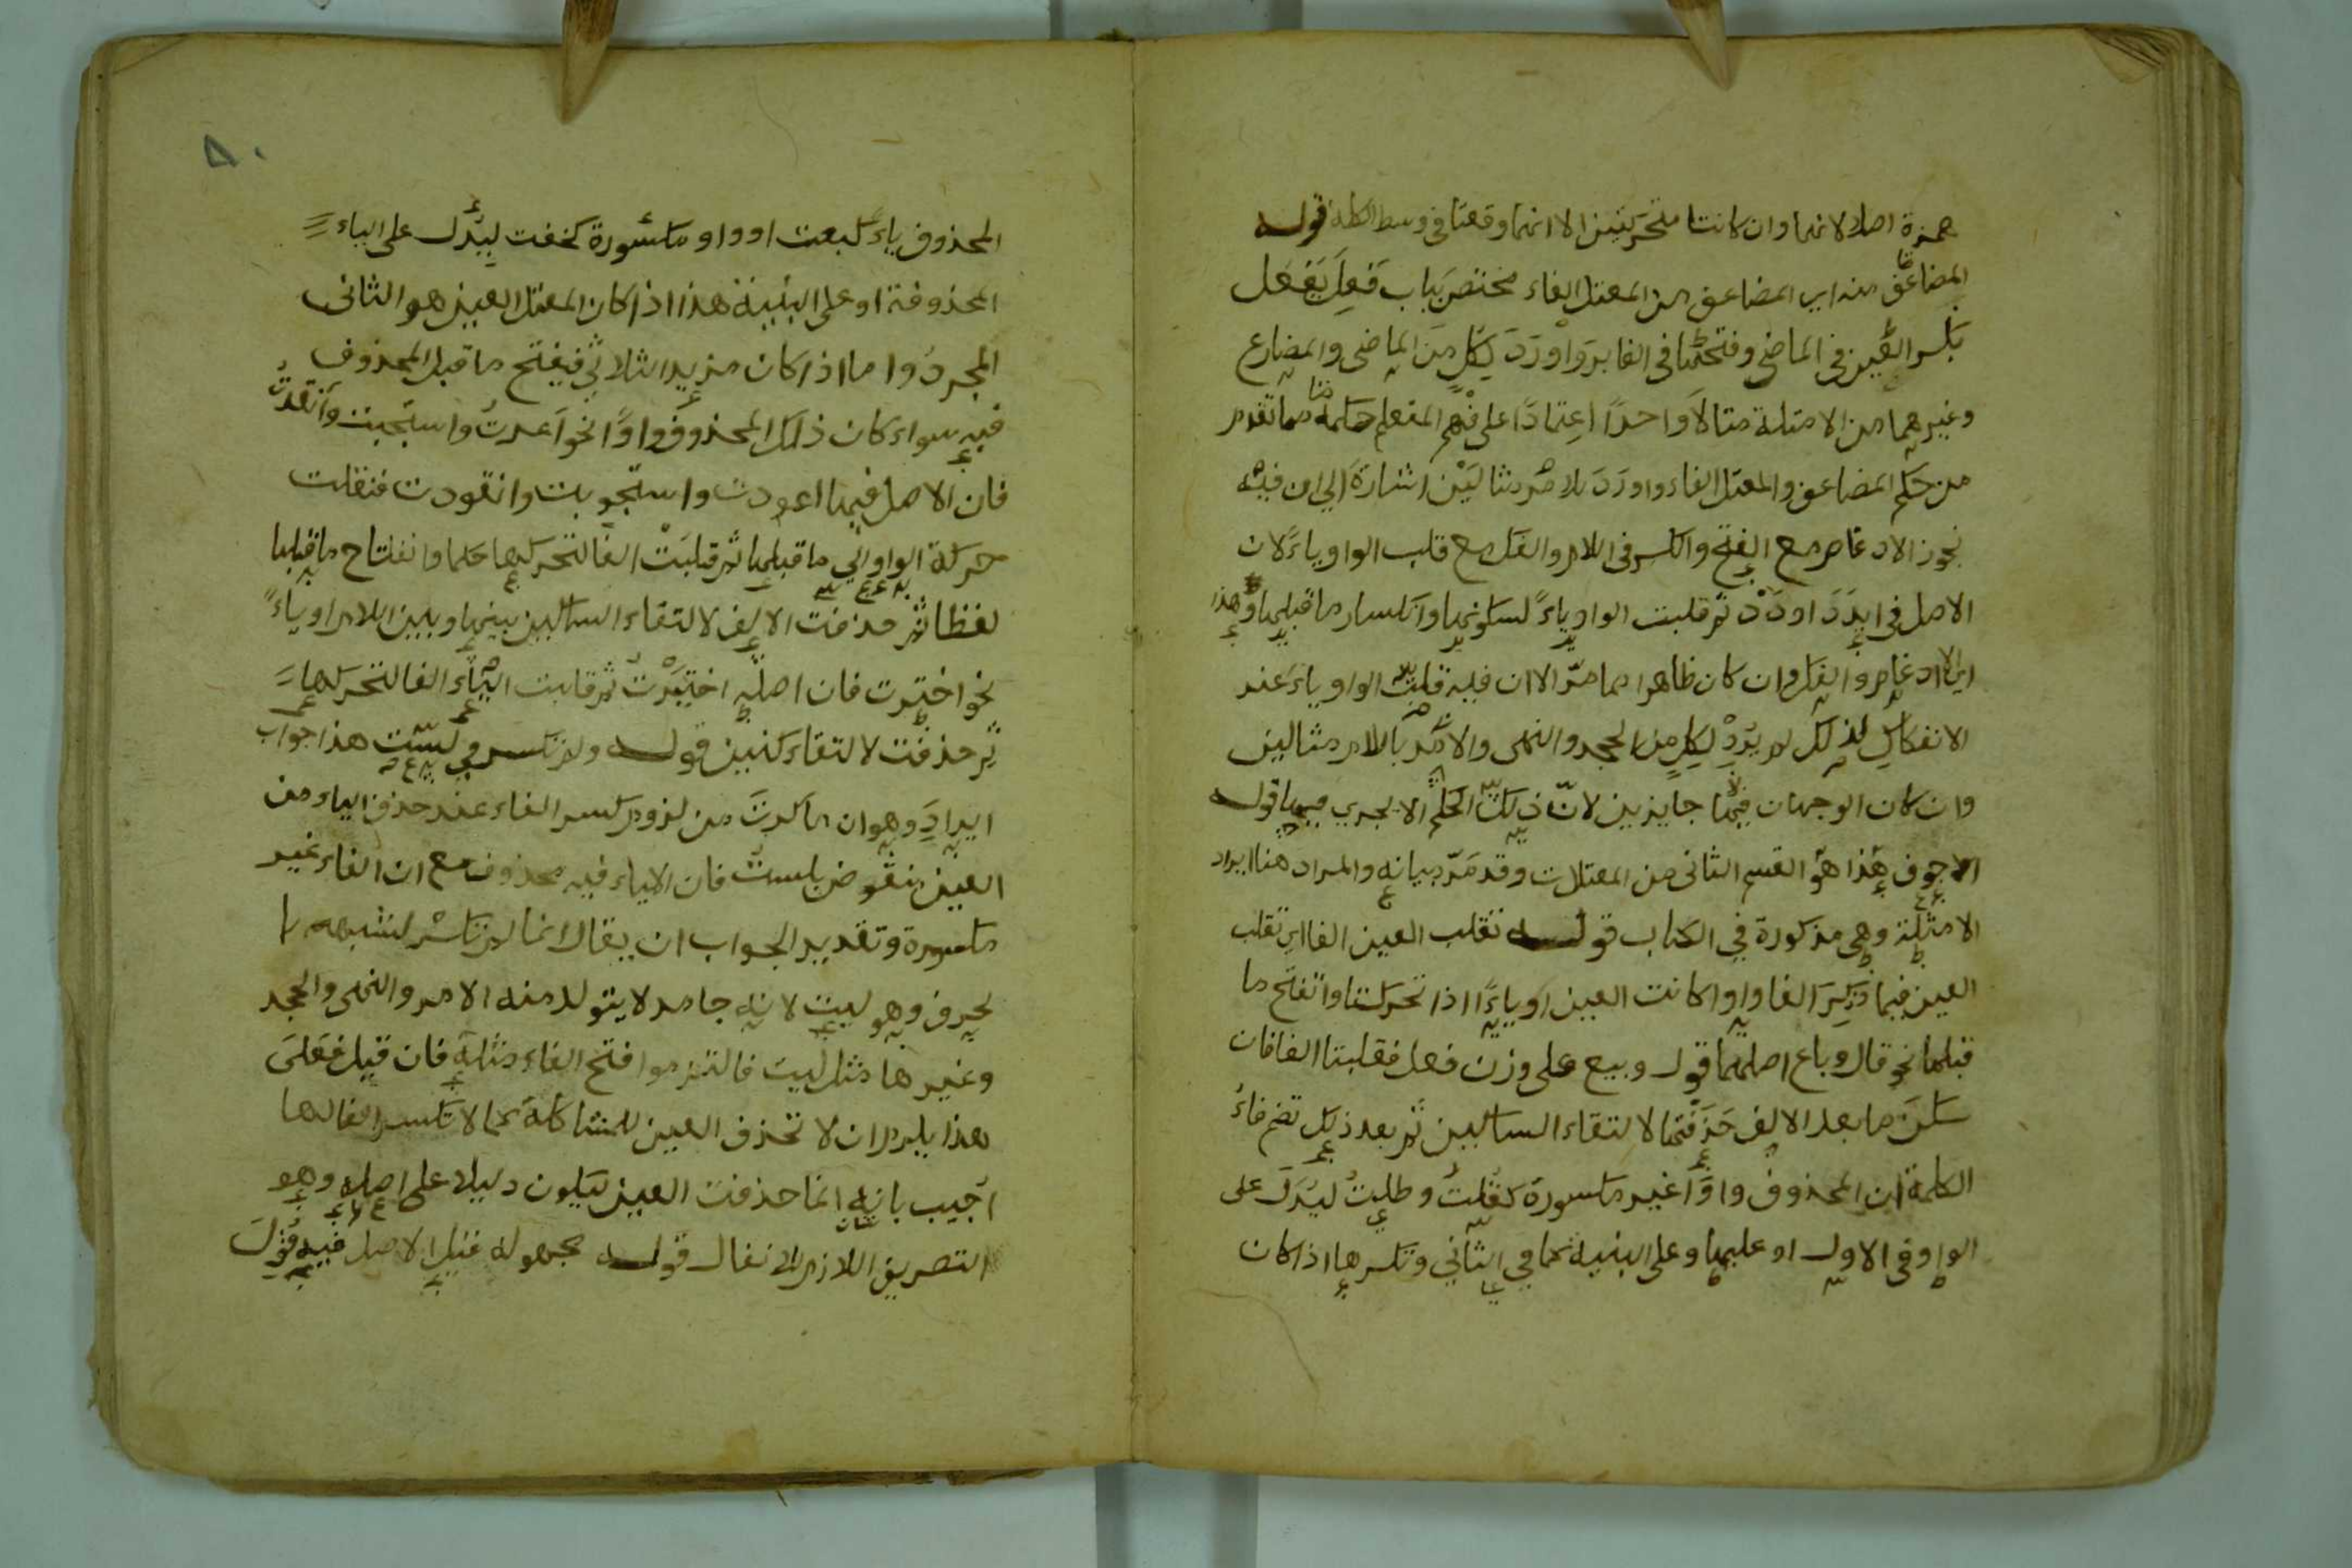 همزة اصلا لانهما وان كانتا متحركتين الا انهما وقعتا فى وسط الكلمة قوله
المضاعف منه اى المضاعف من المعتل الفاء مختص بباب فَعِلَ يَفْعَل
بكسر العين فى الماضى وفتحها فى الغابر واورَدَ لكل من الماضى والمضارع
وغيرهما من الامثلة مثالاً واحدًا اعتمادًا على فهم المتعلم حكمه مما تقدم
من حكم المضاعف والمعتل الفاء واورَدَ للامر مثالَيْن اشارةً الى ان فيه
يجوز الادغام مع الفتح والكسر فى اللام والفك مع قلب الواو ياءً لان
الاصل فى ايدَدْ اودَدْ ثم قلبت الواو ياءً لسكونها وانكسار ما قبلها وهذا
اى الادغام والفك وان كان ظاهرا مما مرّ الا ان فيه قلبت الواو ياء عند
الانفكاك لذلك لم يرِدْ لكل من الجحد والنهى والامر باللام مثالين
وان كان الوجهان فيها جايزين لانّ ذلك الحكم الا يجرى فيها قوله
الاجوف هذا هو القسم الثانى من المعتلات وقد مَرّ بيانه والمراد هنا ايراد
الامثلة وهى مذكورة فى الكتاب قوله تقلب العين الفا اى تقلب
العين فيما ذكِرَ الفا واوا كانت العين او ياءً اذا تحركتا وانفتح ما
قبلهما نحو قال وباع اصلهما قول وبيع على وزن فعل فقلبتا الفا فان
سكنَ ما بعد الالف حَذَفْتها لالتقاء الساكنين ثم بعد ذلك تضم فاءُ
الكلمة ان المحذوف واوًا غير مكسورة كقُلتُ وطلتُ ليَدُلَ على
الواو فى الاول او عليها وعلى البنية كما فى الثانى وتكسرها اذا كان
٨٠
المحذوف ياءً كبعت او واو مكسورة كخفت ليدُل على الياء
المحذوفة او على البنية هذا اذا كان المعتل العين هو الثانى
المجرد واما اذا كان مزيد الثلاثى فيفتح ما قبل المحذوف
فيه سواء كان ذلك المحذوف واوًا نحو اَعدتُ واستجبت وانقدتُ
فان الاصل فيها اعودت واستجوبت وانقودت فنقلت
حركة الواو الى ما قبلها ثم قلبَتْ الفا لتحركها حكما وانفتاح ما قبلها
لفظا ثم حذفت الالف لالتقاء الساكنين بينها وبين اللام او ياءً
نحو اخترت فان اصله اختيَرْتُ ثم قلبت الياء الفا لتحركها
ثم حذفت لالتقاء كنين قوله ولم تكسر فى لست هذا جواب
ايرادٍ وهو ان ما ذكرتَ من لزوم كسر الفاء عند حذف الياء من
العين منقوض بلستُ فان الاياء فيه محذوف مع ان الفاء غير
مكسورة وتقدير الجواب ان يقال انما لم تكسر لشبهه با
لحرف وهو ليت لانه جامد لا يتولد منه الامر والنهى والجحد
وغيرها مثل ليت فالتزموا فتح الفاء مثله فان قيل فعَلىَ
هذا يلزم ان لا تحذف العين للمشاكلة كما لا تكسر الفا لها
اجيب بانه انما حذفت العين ليكون دليلا على اصله وهو
التصريف اللازم للافعال قوله مجهوله قيل الاصل فيه قُوِلَ